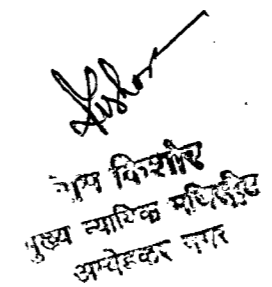 Kishor
किशोर
मुख्य न्यायिक मजिस्ट्रेट
अम्बेडकर नगर